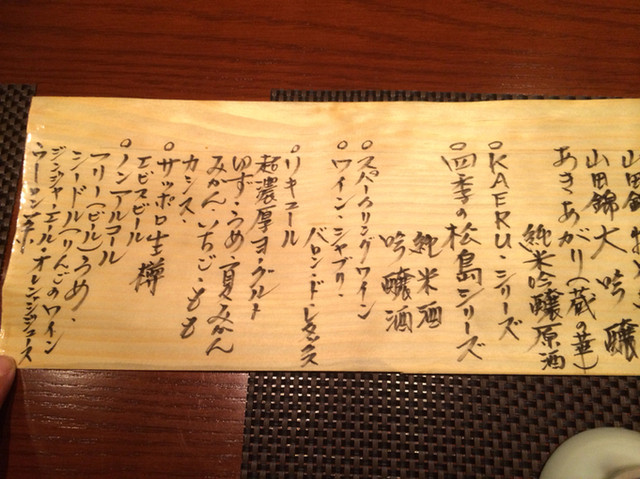 山田錦
山田錦大吟醸
あきあがり(蔵の華)
純米吟醸原酒
○KAERU・シリーズ
○四季の松島シリーズ
純米酒
吟醸酒
○スパークリングワイン
○ワイン・シャブリ・
バロン・ド・レスタックス
○リキュール
超濃厚ヨーグルト
ゆず・うめ・夏みかん
みかん・いちご・もも
カシス・
○サッポロ生樽
エビスビール
○ノンアルコール
フリー(ビール)うめ・
シードル(りんごのワイン
ジンジャーエール・オレンジジュース
ウーロン